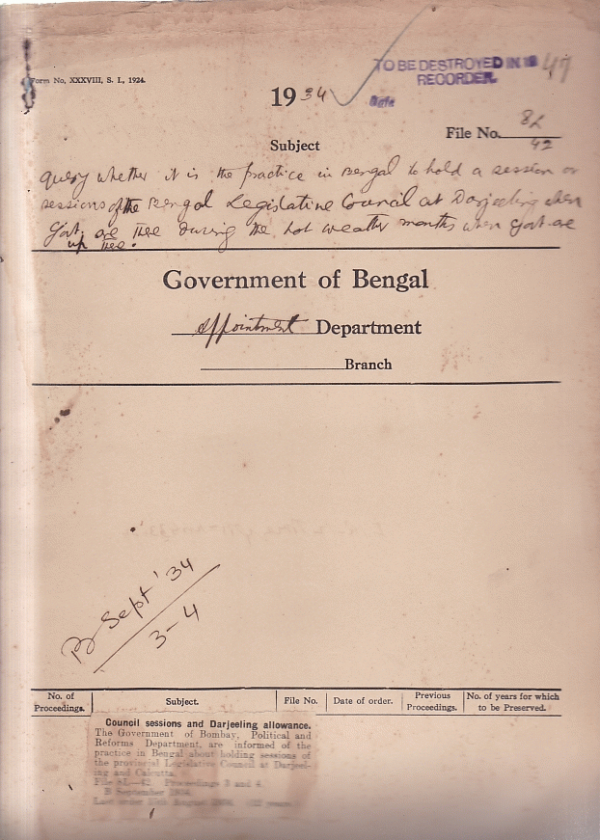 Form No. XXXVIII, S. L., 1924.
TO BE DESTROYED IN 19 47
RECORDER.
Date
1934
File No. 8L
42
Subject
Query whether it is the practice in Bengal to hold a session or
sessions of the Bengal Legislative Council at Darjeeling when
Govt. are there during the hot weather months when Govt. are
up there.
Government of Bengal
Appointment Department
Branch
B Sept '34
3-4
No. of Proceedings.
Subject.
File No.
Date of order.
Previous Proceedings.
No. of years for which to be Preserved.
Council sessions and Darjeeling allowance.
The Government of Bombay, Political and
Reforms Department, are informed of the
practice in Bengal about holding sessions of
the provincial Legislative Council at Darjeel-
ing and Calcutta.
File 8L—42 Proceedings 3 and 4.
B September 1934.
Last order 15th August 1934. (12 years)